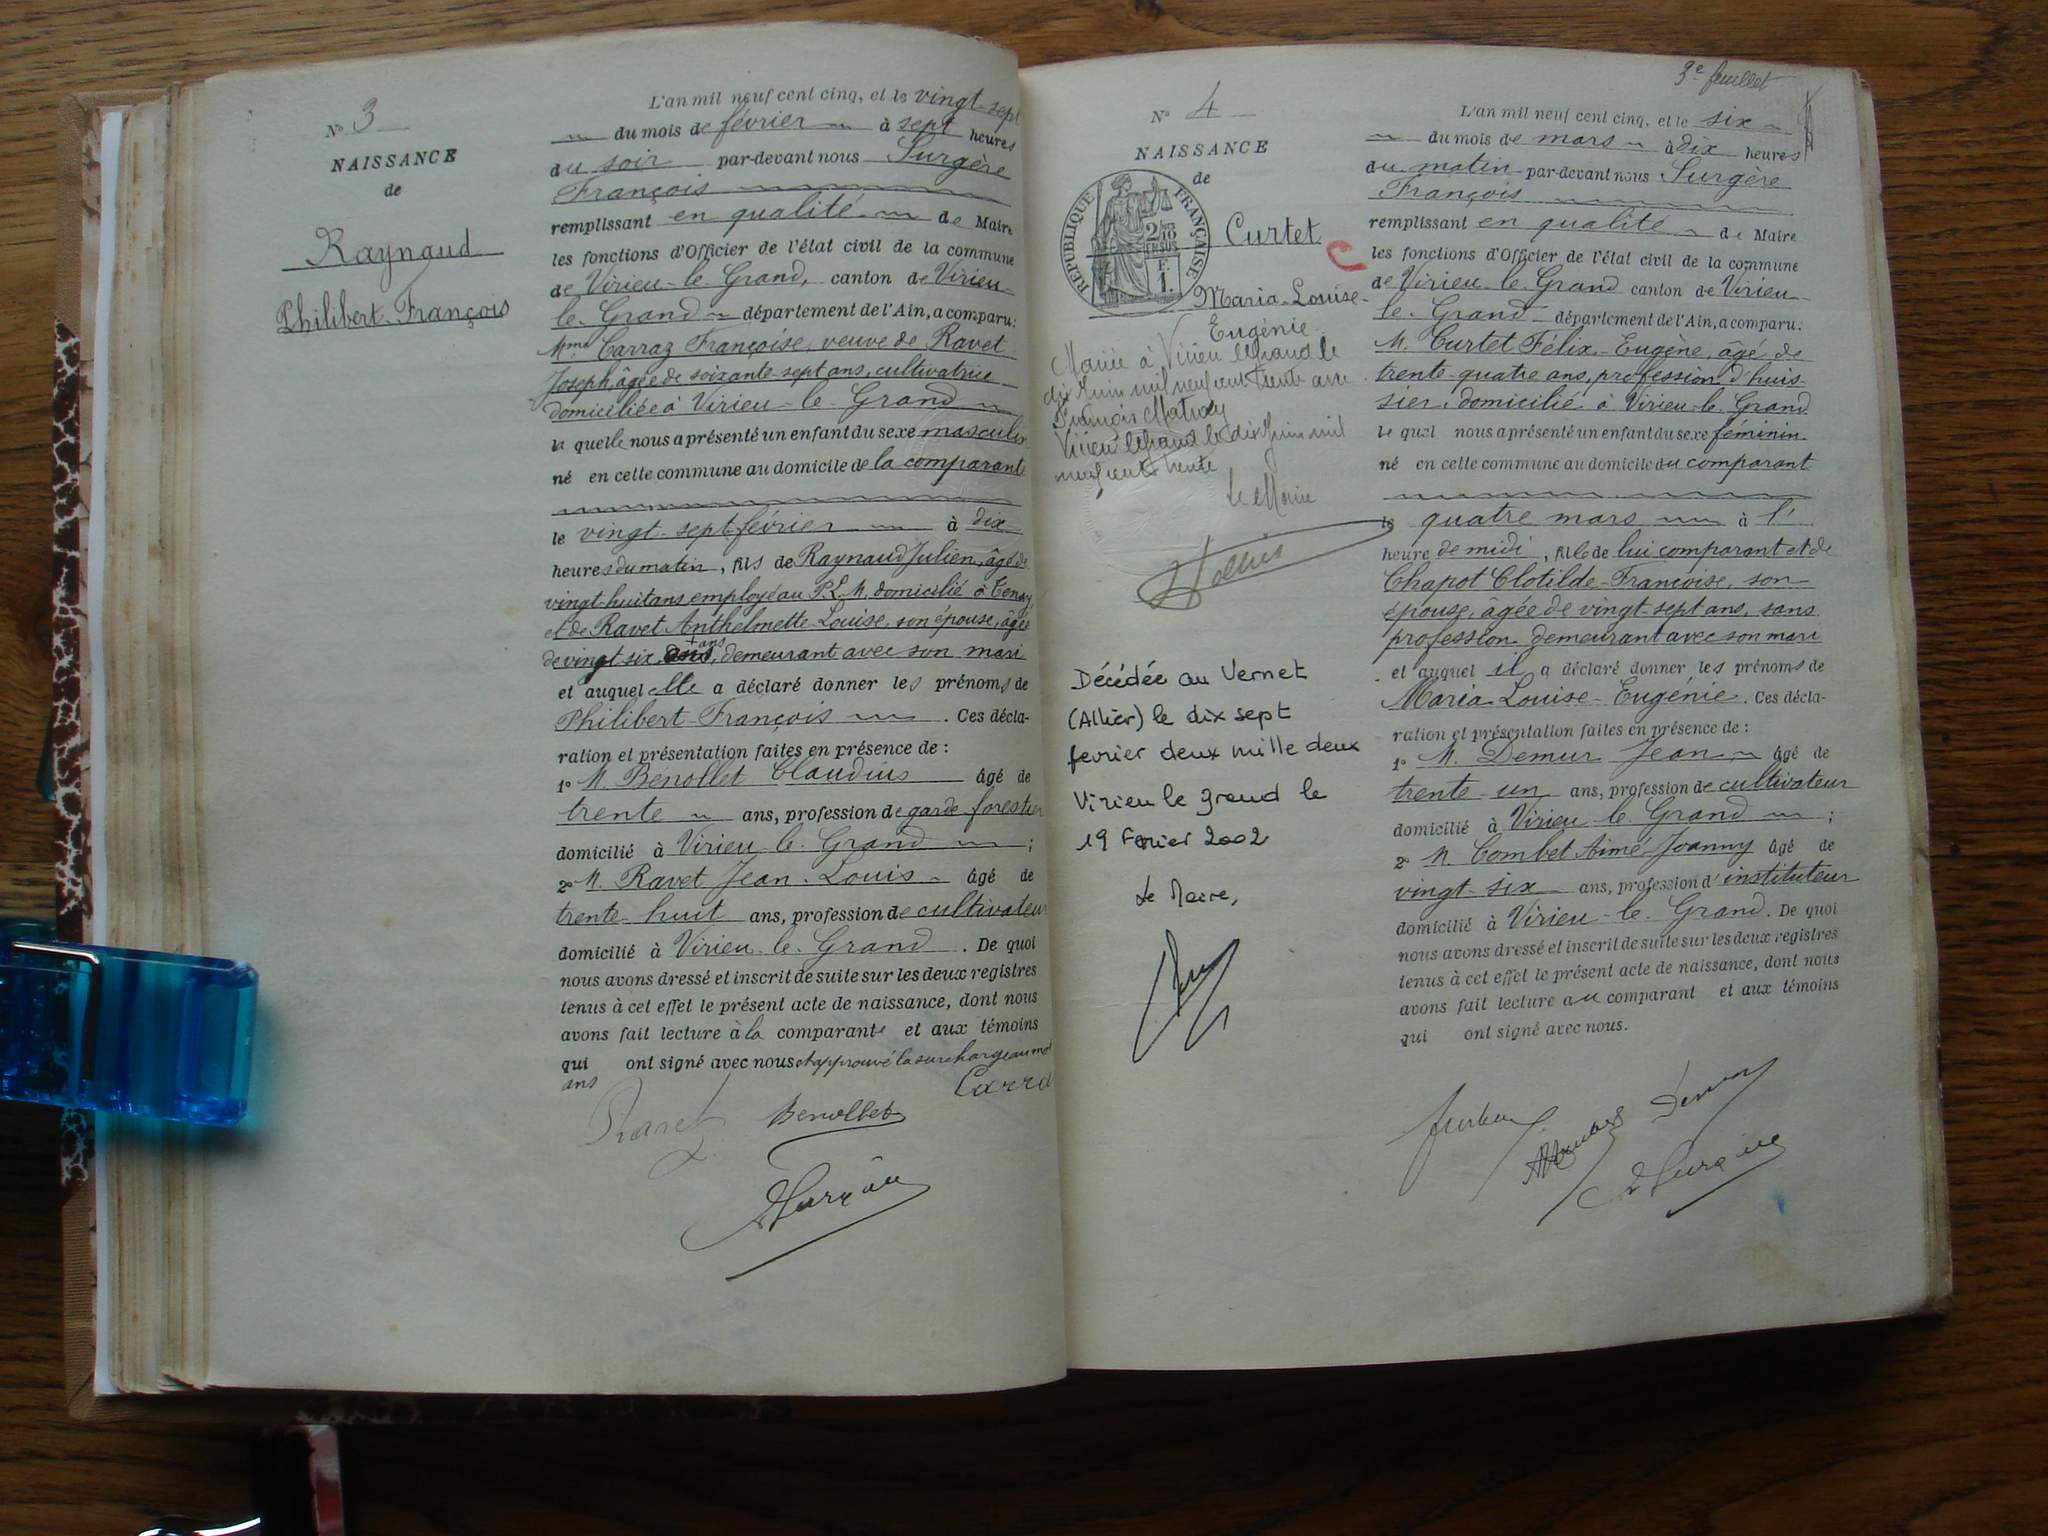 N° 3
NAISSANCE
de
Raynaud
Philibert-François
L'an mil neuf cent cinq, et le vingt-sept
du mois de février à sept heures
du soir par-devant nous Surgère
François
remplissant en qualité de Maire
les fonctions d'Officier de l'état civil de la commune
de Virieu-le-Grand, canton de Virieu-
le-Grand département de l'Ain, a comparu:
Mme Carraz Françoise, veuve de Ravet
Joseph âgée de soixante-sept ans, cultivatrice
domiciliée à Virieu-le-Grand
la quelle nous a présenté un enfant du sexe masculin
né en cette commune au domicile de la comparante
le vingt-sept février à dix
heures du matin, fils de Raynaud Julien, âgé de
vingt-huit ans employé au P.L.M. domicilié à Tenay
et de Ravet Anthelmette-Louise, son épouse, âgée
de vingt six ans, demeurant avec son mari
et auquel elle a déclaré donner les prénoms de
Philibert-François. Ces décla-
ration et présentation faites en présence de :
1° M. Bénollet Claudius âgé de
trente ans, profession de garde forestier
domicilié à Virieu-le-Grand ;
2° M. Ravet Jean-Louis âgé de
trente-huit ans, profession de cultivateur
domicilié à Virieu-le-Grand. De quoi
nous avons dressé et inscrit de suite sur les deux registres
tenus à cet effet le présent acte de naissance, dont nous
avons fait lecture à la comparante et aux témoins
qui ont signé avec nous et approuvé la surcharge au mot
ans
Ravet Benollet
3e feuillet
N° 4
NAISSANCE
de
RÉPUBLIQUE FRANÇAISE
2/10
EN SUS
F.
1.
Curtet
C
Maria-Louise-
Eugénie
Mariée à Virieu le Grand le
dix Juin mil neuf cent trente avec
François
Virieu le Grand le dix Juin mil
neuf cent trente
Le Maire
Décédée au Vernet
(Allier) le dix sept
fevrier deux mille deux
Virieu le grand le
19 Fevrier 2002
Le Maire,
L'an mil neuf cent cinq, et le six
du mois de mars à dix heures
du matin par-devant nous Surgère
François
remplissant en qualité de Maire
les fonctions d'Officier de l'état civil de la commune
de Virieu-le-Grand canton de Virieu-
le-Grand département de l'Ain, a comparu:
M. Curtet Félix-Eugène, âgé de
trente-quatre ans, profession d'huis-
sier, domicilié à Virieu-le-Grand
le quel nous a présenté un enfant du sexe féminin
né en cette commune au domicile du comparant
le quatre mars à l'
heure de midi, fille de lui comparant et de
Chapot Clotilde-Françoise, son
épouse, âgée de vingt-sept ans, sans
profession demeurant avec son mari
et auquel il a déclaré donner les prénoms de
Maria Louise-Eugénie. Ces décla-
ration et présentation faites en présence de :
1° M. Demur Jean âgé de
trente-un ans, profession de cultivateur
domicilié à Virieu-le-Grand ;
2° M. Combet Aimé-Joanny âgé de
vingt-six ans, profession d'instituteur
domicilié à Virieu-le-Grand. De quoi
nous avons dressé et inscrit de suite sur les deux registres
tenus à cet effet le présent acte de naissance, dont nous
avons fait lecture au comparant et aux témoins
qui ont signé avec nous.